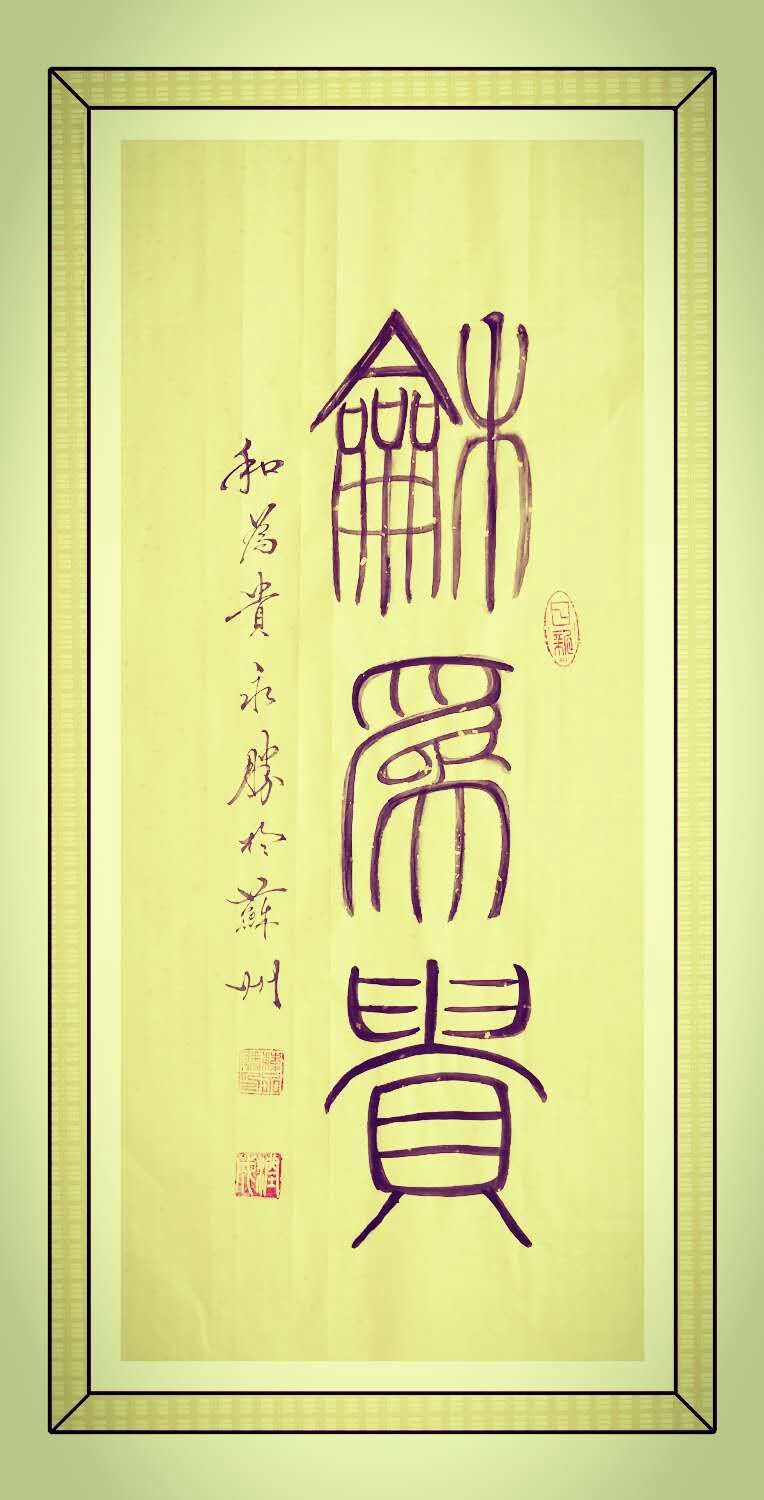 龢為貴
和為貴永勝於蘇州